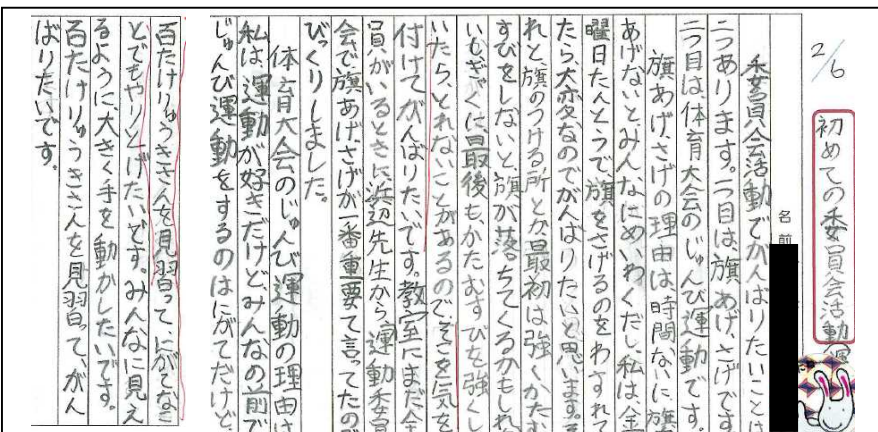 2/6
初めての委員会活動
名前
委員会活動でがんばりたいことは
二つあります。一つ目は、旗あげさげです
二つ目は、体育大会のじゅんび運動です。
旗あげさげの理由は時間ないに旗
あげないと、みんなにめいわくだし、私は、金
曜日たんとうで、旗をさげるのをわすれて
たら、大変なのでがんばりたいと思います。
れと、旗のつける所とか最初は強くかたむ
すびをしないと、旗が落ちてくるかもしれ
に、最後も、かたむすびを強くし
いたら、とれないことがあるので、そこを気を
付けてがんばりたいです。教室にまだ全
員がいるときに浜辺先生から運動委員
会で旗あげさげが一番重要て言ってたので
びっくりしました。
体育大会のじゅんび運動の理由は
私は、運動が好きだけど、みんなの前で
じゅんび運動をするのはにがてだけど、
百たけりゅうきさんを見習って、にがてなこ
とでもやりとげたいです。みんなに見え
るように、大きく手を動かしたいです。
百たけりゅうきさんを見習って、がん
ばりたいです。